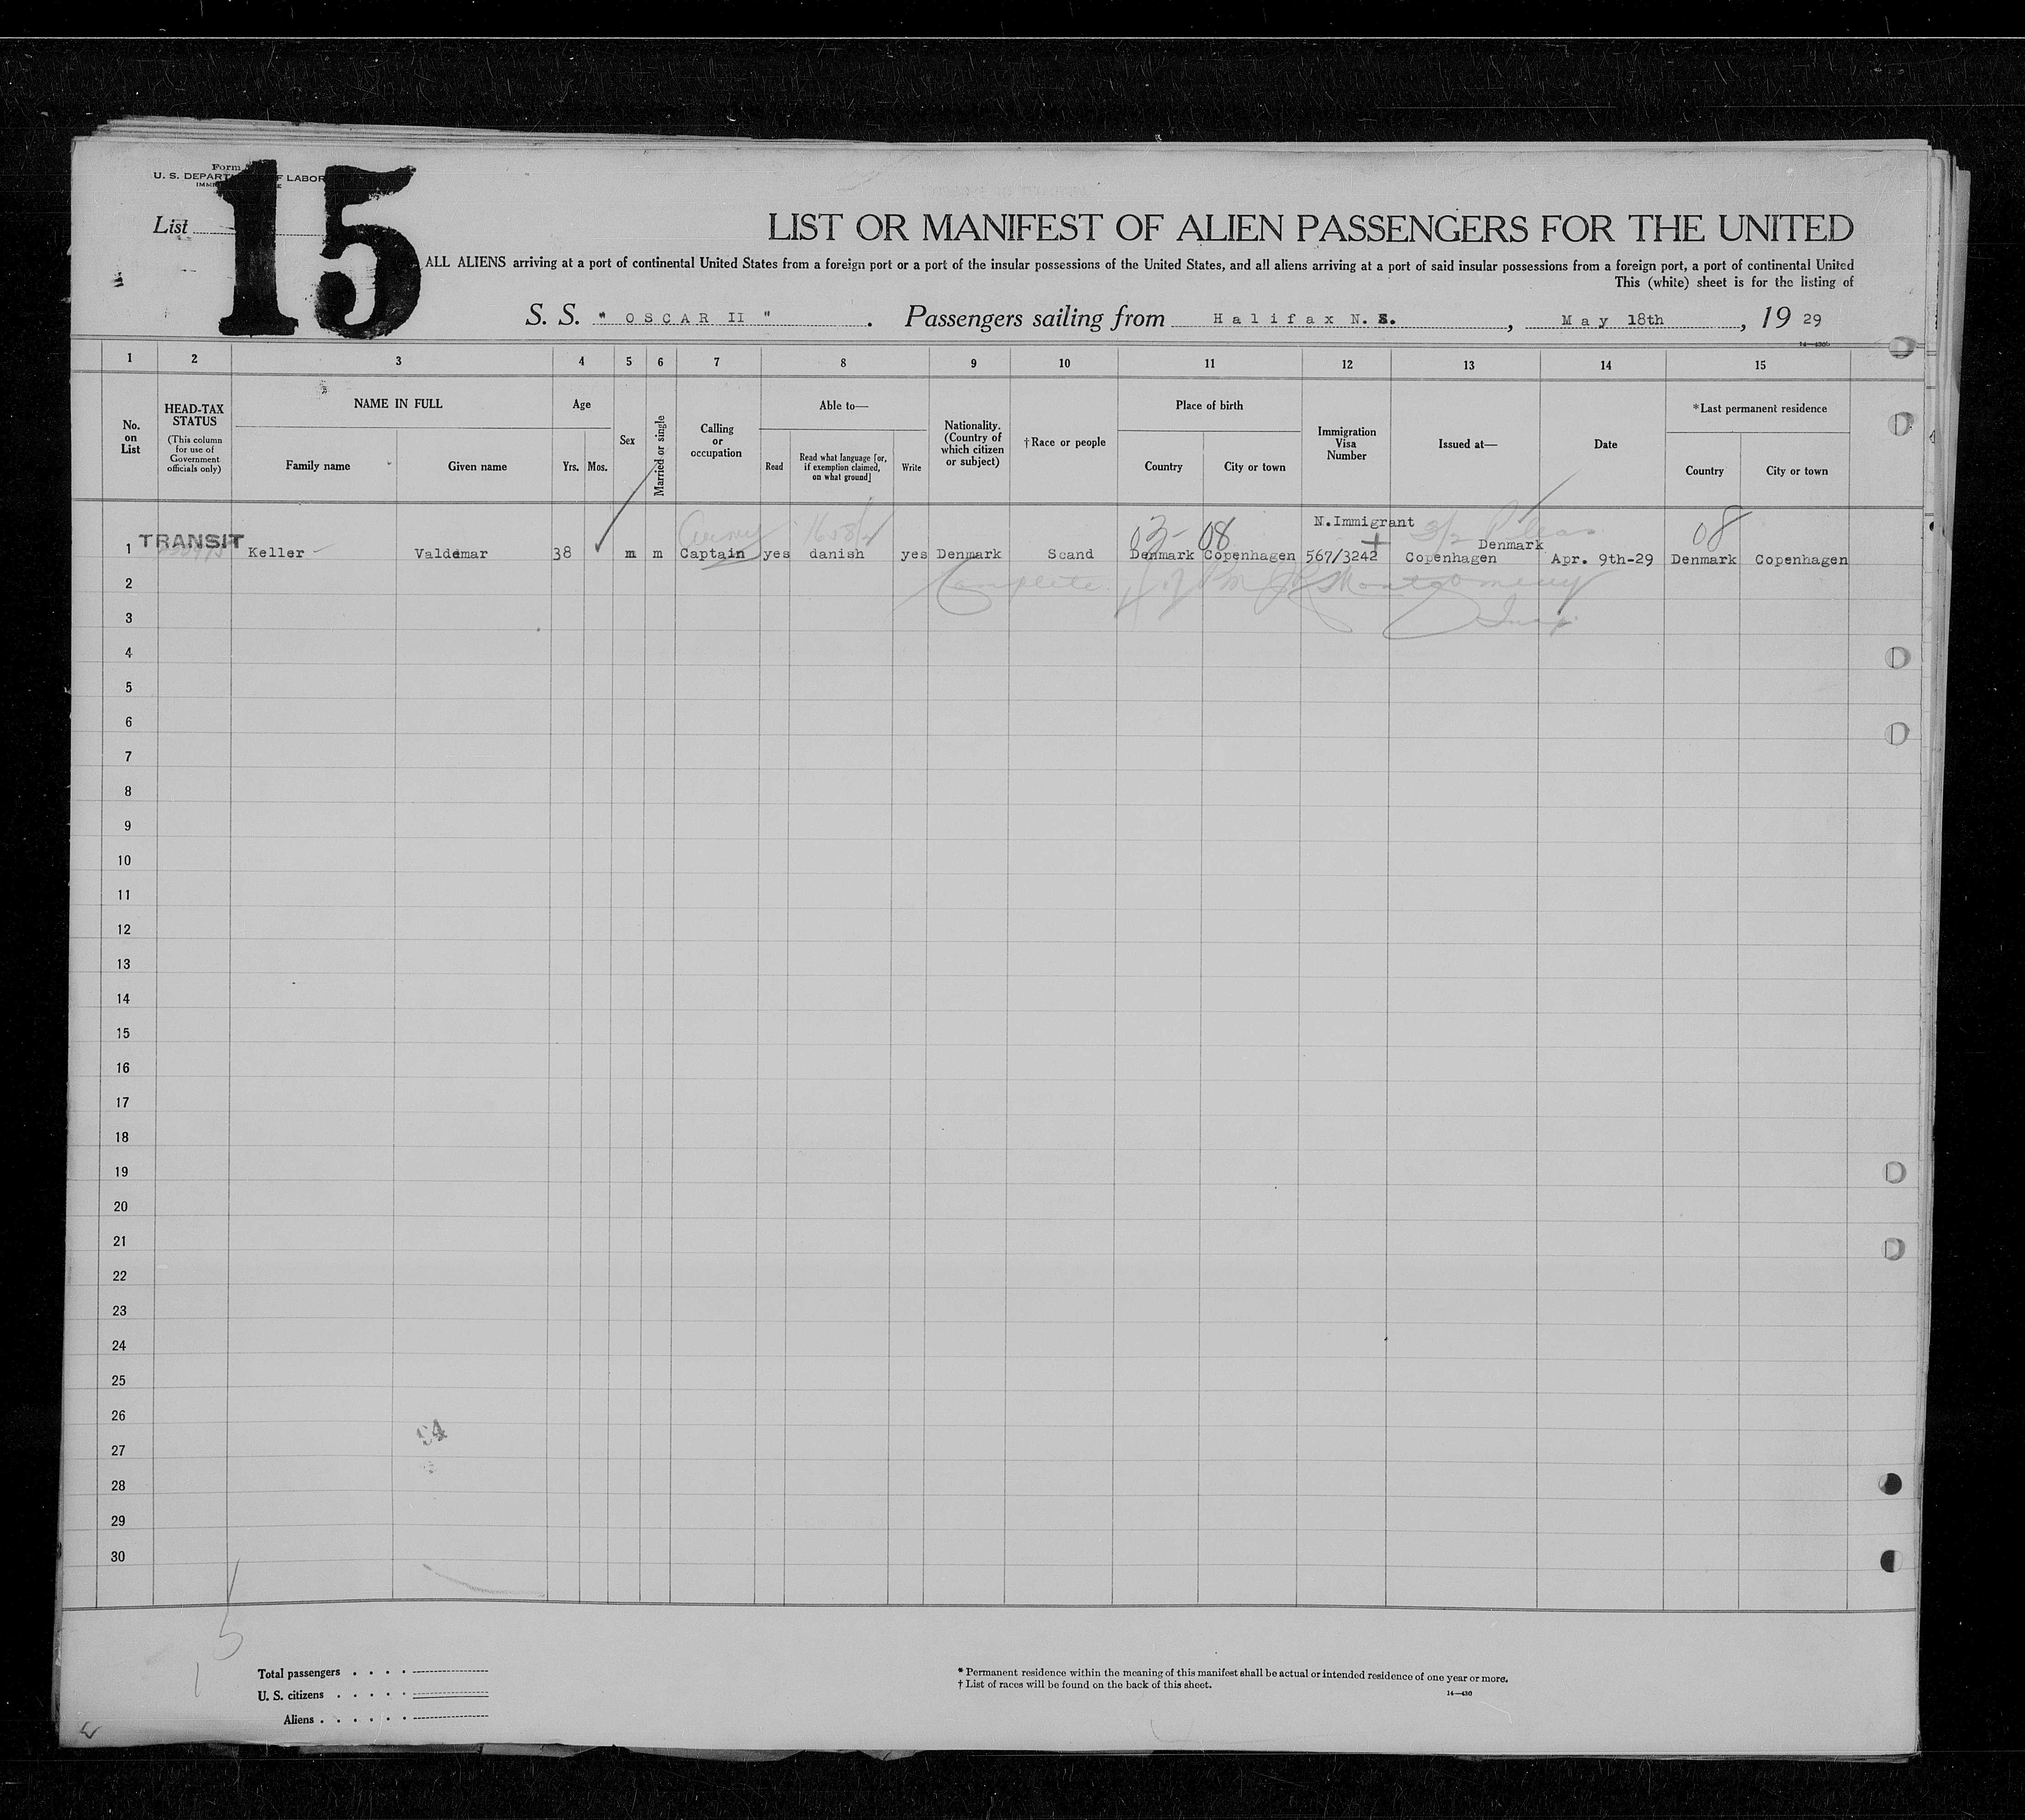 15
Form
U. S. DEPARTMENT OF LABOR
List
LIST OR MANIFEST OF ALIEN PASSENGERS FOR THE UNITED
ALL ALIENS arriving at a port of continental United States from a foreign port or a port of the insular possessions of the United States, and all aliens arriving at a port of said insular possessions from a foreign port, a port of continental United
This (white) sheet is for the listing of
S. S. " OSCAR II " . Passengers sailing from Halifax N. S. , May 18th , 19 29
1 2 3 4 5 6 7 8 9 10 11 12 13 14 15
No. on List
HEAD-TAX STATUS
(This column for use of Government officials only)
NAME IN FULL
Family name Given name
Age
Yrs. Mos.
Sex
Married or single
Calling or occupation
Able to—
Read
Read what language [or, if exemption claimed, on what ground]
Write
Nationality. (Country of which citizen or subject)
†Race or people
Place of birth
Country City or town
Immigration Visa Number
Issued at—
Date
*Last permanent residence
Country City or town
03- 08 N.Immigrant 08
1 TRANSIT Keller Valdemar 38 m m Captain yes danish yes Denmark Scand Denmark Copenhagen 567/3242 Denmark Copenhagen Apr. 9th-29 Denmark Copenhagen
2 Complete Montgomery
3 Insp.
4
5
6
7
8
9
10
11
12
13
14
15
16
17
18
19
20
21
22
23
24
25
26
27
28
29
30
Total passengers . . . .
U. S. citizens . . . . .
Aliens . . . . . .
* Permanent residence within the meaning of this manifest shall be actual or intended residence of one year or more.
† List of races will be found on the back of this sheet.
14—430